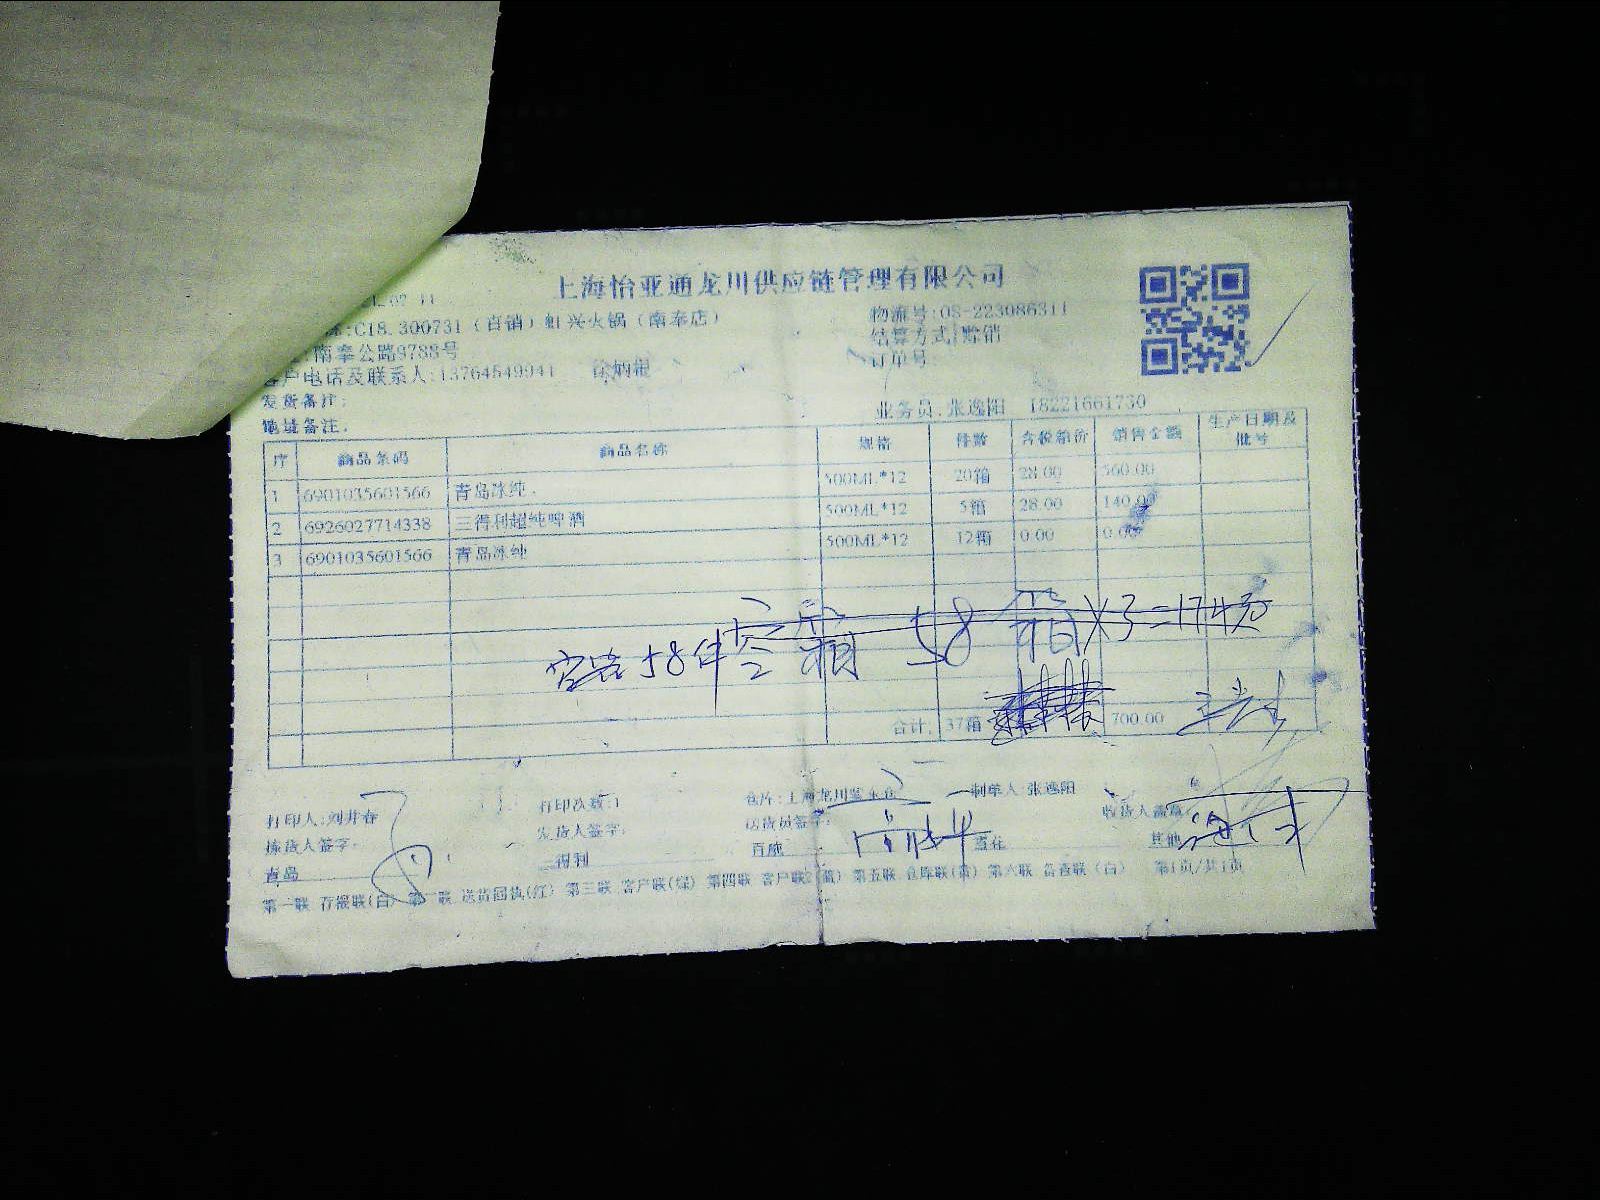 上海怡亚通龙川供应链管理有限公司
02-11
物流号:OS-223086311
:C18.300731（百销）虹兴火锅（南奉店）
结算方式:赊销
:南奉公路9788号
订单号
客户电话及联系人:13764549941 徐炳根
发货备注:
业务员:张逸阳 18221661730
地址备注:
序 商品条码 商品名称 规格 件数 含税箱价 销售金额 生产日期及批号
1 6901035601566 青岛冰纯 500ML*12 20箱 28.00 560.00
2 6926027714338 三得利超纯啤酒 500ML*12 5箱 28.00 140.00
3 6901035601566 青岛冰纯 500ML*12 12箱 0.00 0.00
空箱 58箱×3=174元
58件
合计: 37箱 700.00
打印人:刘井春 打印次数:1 仓库:上海龙川 制单人:张逸阳
拣货人签字: 发货人签字: 送货员签字: 收货人盖章:
青岛 三得利 百威 雪花 其他
第一联 存根联(白) 第二联 送货回执(红) 第三联 客户联(绿) 第四联 客户联2(蓝) 第五联 仓库联(黄) 第六联 备查联（白） 第1页/共1页